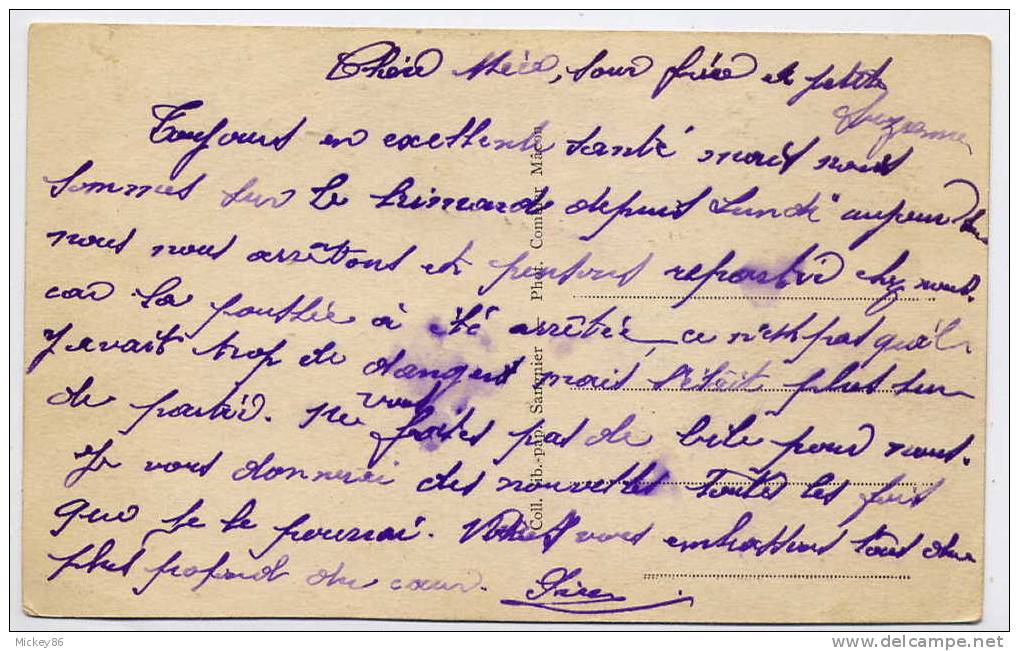 Chère Mère, sour frère et petite
Suzanne
Toujours en excellente santé mais nous
sommes sur le trimard depuis Lundi aujourd'hui
nous nous arrêtons et pensons repartir chez nous.
car la poussée à été arrêtée, ce n'est pas qu'il
y avait trop de danger mais s'était plus sur
de partir. Ne vous faites pas de bile pour nous.
Je vous donnerai des nouvelles toutes les fois
que je le pourrai. vous embrassons tous du
plus profond du cœur.
Coll. Lib.-pap. Phot. Combier Mâcon
Mickey86
www.delcampe.net